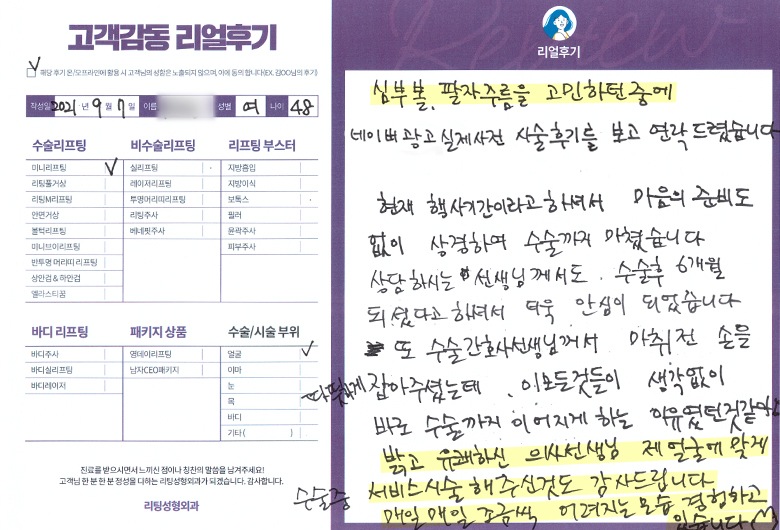 고객감동 리얼후기
해당 후기 온/오프라인에 활용 시 고객님의 성함은 노출되지 않으며, 이에 동의 합니다 (EX. 김OO님의 후기)
작성일 2021년 9월 7일 이름 성별 여 나이 48
수술리프팅
미니리프팅
리팅풀거상
리팅M리프팅
안면거상
볼턱리프팅
미니브이리프팅
반투명 머리띠 리프팅
상안검 & 하안검
엘라스티꿈
비수술리프팅
실리프팅
레이저리프팅
투명머리띠리프팅
리팅주사
베네핏주사
리프팅 부스터
지방흡입
지방이식
보톡스
필러
윤곽주사
피부주사
바디 리프팅
바디주사
바디실리프팅
바디레이저
패키지 상품
영데이리프팅
남자CEO패키지
수술/시술 부위
얼굴
이마
눈
목
바디
기타 ( )
진료를 받으시면서 느끼신 점이나 칭찬의 말씀을 남겨주세요!
고객님 한 분 한 분 정성을 다하는 리팅성형외과가 되겠습니다. 감사합니다.
리팅성형외과
Review
리얼후기
심부볼, 팔자주름을 고민하던중에
네이버광고실제사진 시술후기를 보고 연락드렸습니다
현재 행사기간이라고하셔서 마음의 준비도
없이 상경하여 수술까지 마쳤습니다
상담하시는 선생님께서도. 수술후 6개월
되셨다고하셔서 더욱 안심이 되었습니다
또 수술간호사선생님께서 마취전 손을
따뜻하게 잡아주셨는데. 이모든것들이 생각없이
바로 수술까지 이어지게 하는 이유였던것같아요
밝고 유쾌하신 의사선생님 제얼굴에 맞게
수술중 서비스시술 해주신것도 감사드립니다
매일매일 조금씩 어려지는모습 경험하고
있습니다